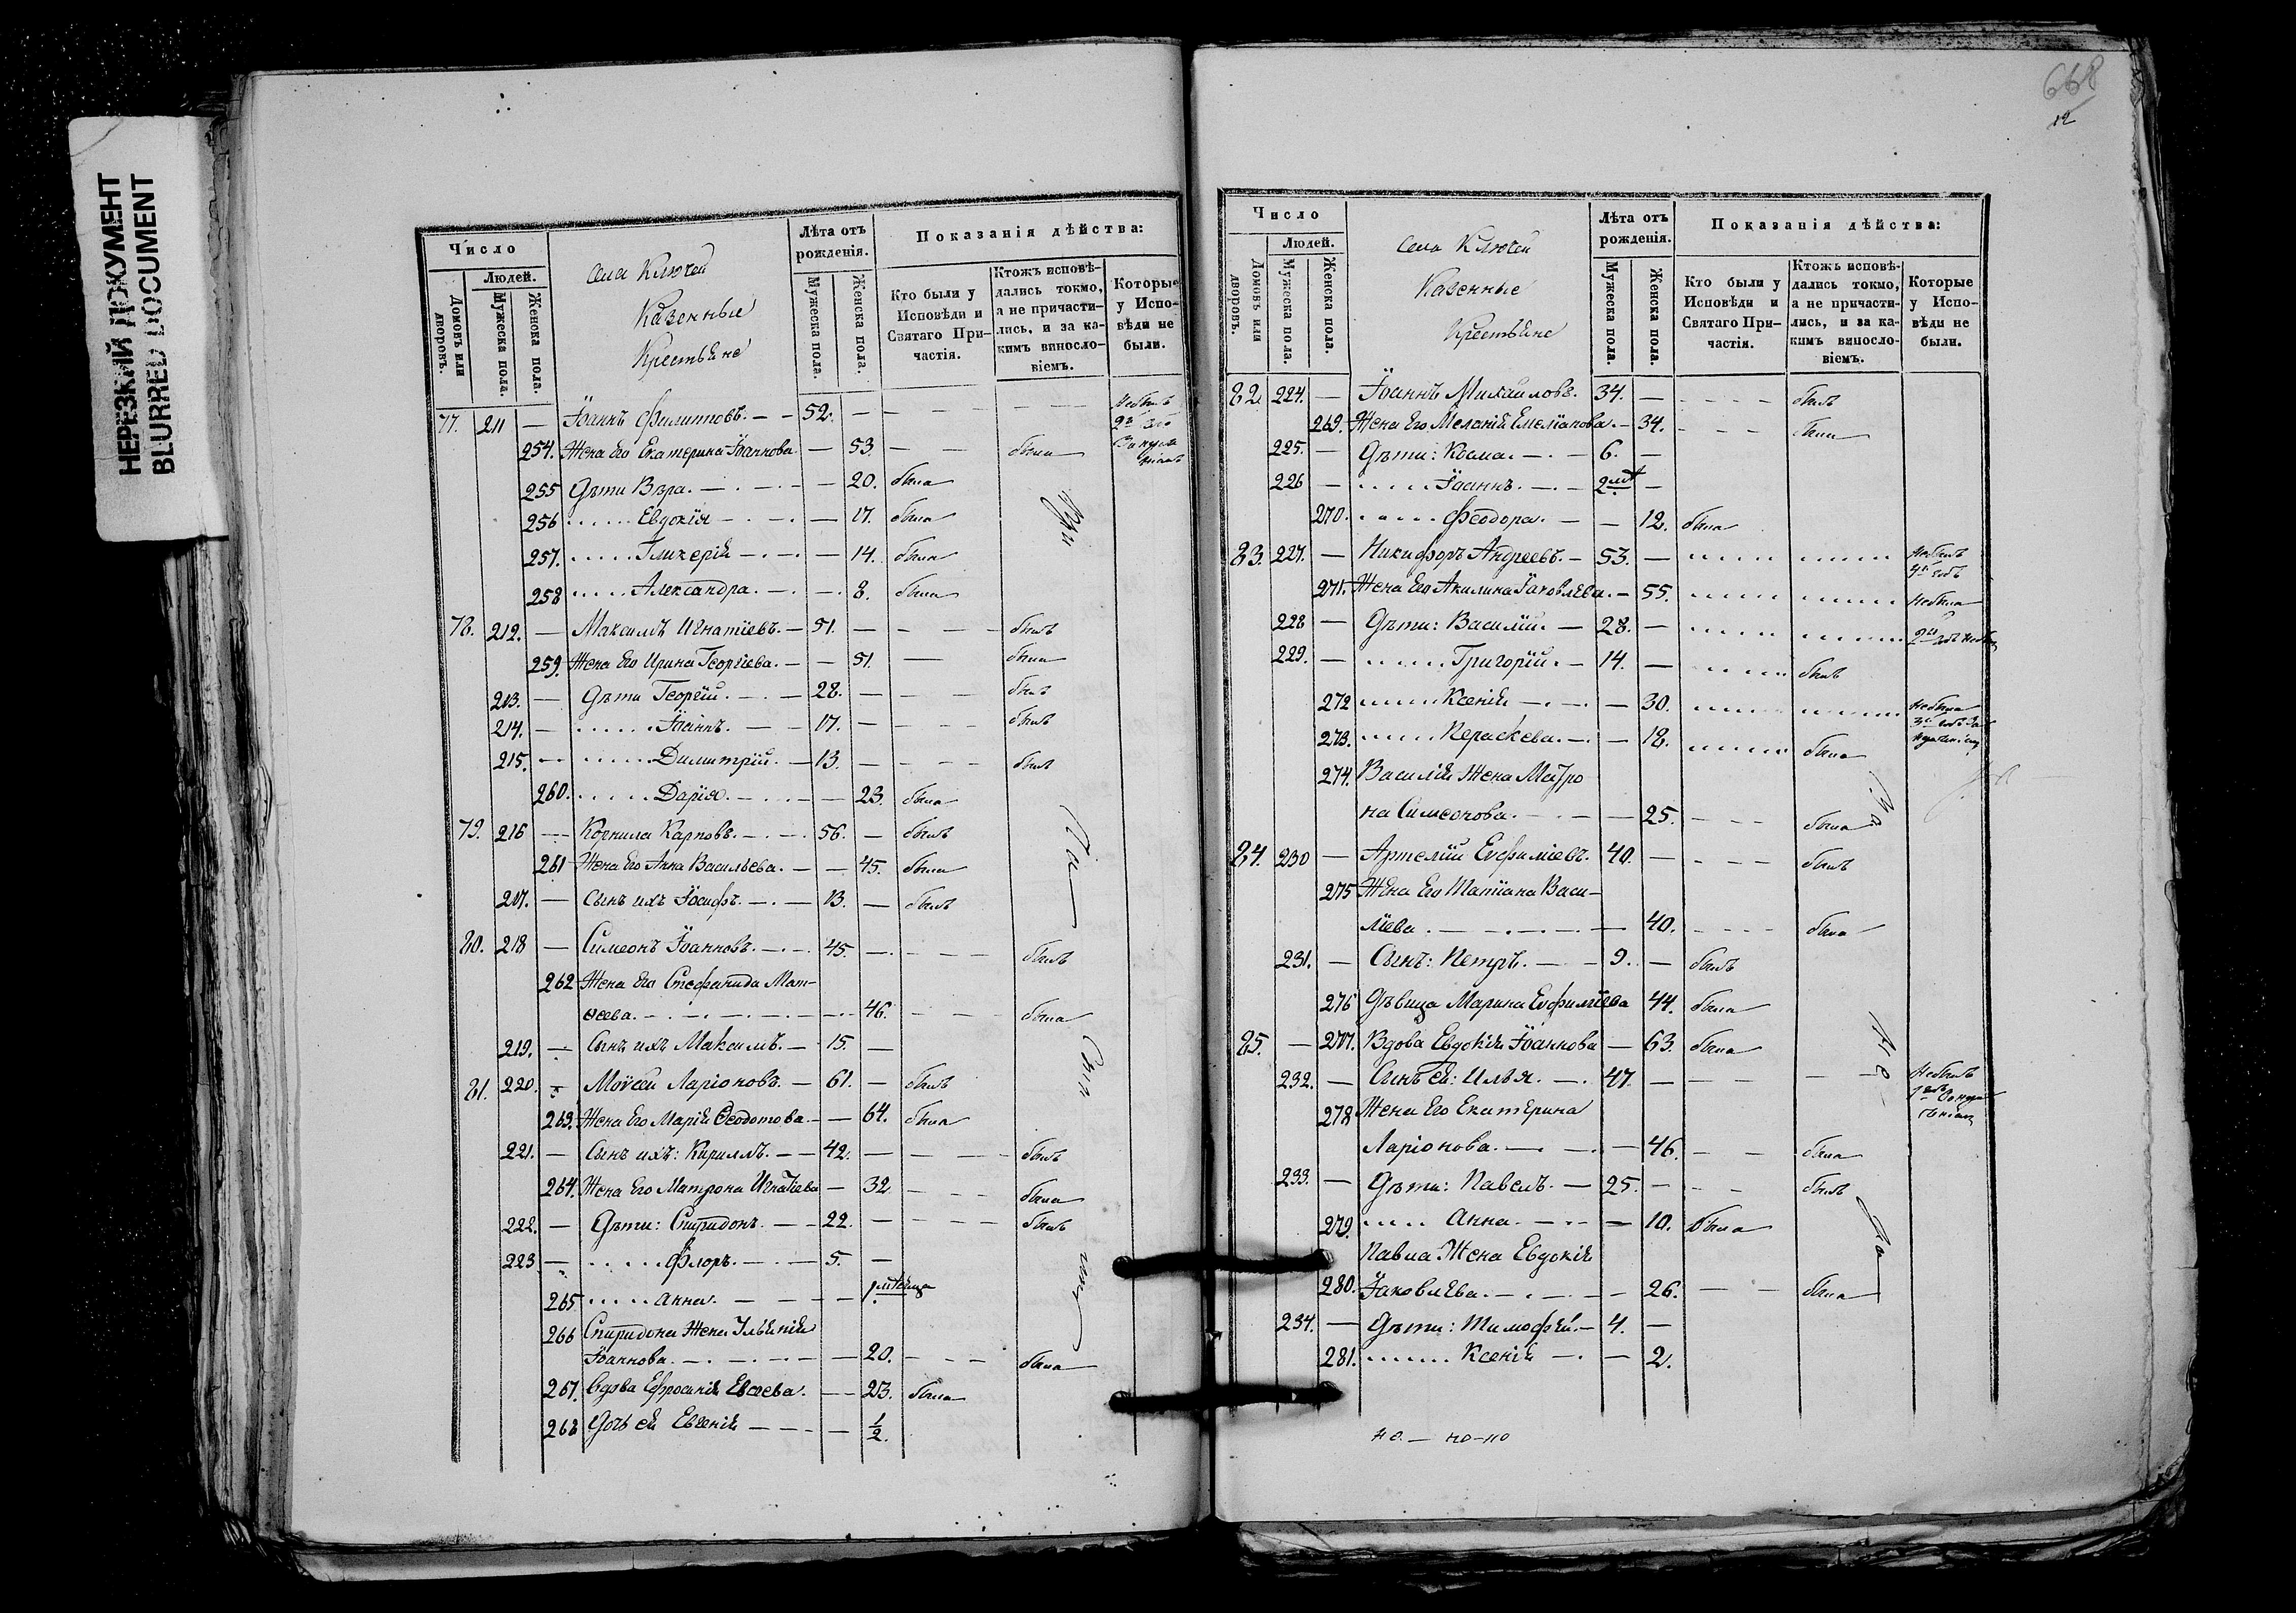 НЕРЕЗКИЙ ДОКУМЕНТ
BLURRED DOCUMENT
Число
Людей.
Домовъ или дворовъ.
Мужеска пола.
Женска пола.
Села Ключей
Казенные
Крестьяне
Лѣта отъ рожденія.
Мужеска пола.
Женска пола.
Показанія дѣйства:
Кто были у Исповѣди и Святаго Причастія.
Ктожъ исповѣдались токмо, а не причастились, и за какимъ винословіемъ.
Которые у Исповѣди не были.
77. 211 — Іоаннъ Филиповъ. — — 52. — — — — Небылъ
254. Жена Его Екатерина Іоаннова — 53. — — была
255 Дѣти Вѣра. — . — . — — 20. была
256 . . . . . Евдокія — . — . — 17. была
257. . . . . . Гликерія — . — . — 14. была
258 . . . . . Александра. — . — . 8. была
78. 212. — Максимъ Игнатіевъ. — 51. — — — — былъ
259. Жена Его Ирина Георгіева. — — 51. — была
213. — Дѣти Георгій. — . — 28. — — — былъ
214. — . . . . . . Іоаннъ. — — 17. — — — — былъ
215. — . . . . . . Димитрій. — 13. — — — — былъ
260. . . . . . Дарія. — . — — — 23. была
79. 216 — Корнила Карповъ. — . — . 56. — былъ
261 Жена Его Анна Васильева. — — 45. была
217. — Сынъ ихъ Іосифъ. — . — 13. — былъ
80. 218 — Симеонъ Іоанновъ. — . — . 45. — . — — — былъ
262 Жена Его Стефанида Мат-
ѳеева. — . — . — . — . — 46. — — — была
219. — Сынъ ихъ Максимъ. — 15. —
81. 220. — Моѵсей Ларіоновъ. — 61. — былъ
263. Жена Его Марія Ѳеодотова — — 64. была
221. — Сынъ ихъ: Кириллъ. — — 42. — — — — былъ
264. Жена Его Матрона Игнатіева — 32 — — — была
222. — Дѣти: Спиридонъ. — — 22. — — — — былъ
223 — . . . . . Флоръ. — . — 5. —
265 . . . . . Анна. — — — — 1
266 Спиридона Жена
Іоаннова. — . — . — — — 20. — — — была
267. Вдова Ефросинія Евсеева. — — 23. была
268 Дочь ея Евгенія — — — — 1/2.
668
12
Число
Людей.
Домовъ или дворовъ.
Мужеска пола.
Женска пола.
Села Ключей
Казенные
Крестьяне
Лѣта отъ рожденія.
Мужеска пола.
Женска пола.
Показанія дѣйства:
Кто были у Исповѣди и Святаго Причастія.
Ктожъ исповѣдались токмо, а не причастились, и за какимъ винословіемъ.
Которые у Исповѣди не были.
82. 224. — Іоаннъ Михаиловъ. 34. — — — — — былъ
269. Жена Его Меланія Емеліанова. — 34. — — — — была
225. — Дѣти: Косма. — . — 6. —
226 — . . . . . Іоаннъ. — . — 2 —
270. . . . . . Феодора. — — 12. была
83. 227. — Никифоръ Андреевъ. — 53. — Небылъ
271. Жена Его Акилина Іаковлева. — 55. Небыла
228 — Дѣти: Василій. — 28. —
229. — . . . . . . Григорій. — 14. — былъ
272 . . . . . . Ксенія — . — . — 30. Небыла
273. . . . . . Пераскева. — . — 18. была
274. Василія Жена Матро
на Симеонова. — . — — 25. — — — была
84. 230 — Артемій Евфиміевъ. 40. — — — — былъ
275 Жена Его Татіана Васи-
ліева . — — . — . — . — 40. — — — — была
231. — Сынъ: Петръ. — — 9. — былъ
276 Дѣвица Марина Евфиміева 44. была
85. — 277. Вдова Евдокія Іоаннова — 63. была
232. — Сынъ ея: Илья. — . 47. — — — — Небылъ
278 Жена Его Екатерина
Ларіонова. — . — . — 46. — — была
233. — Дѣти: Павелъ. — 25. — — — былъ
279. . . . . Анна. — . — — 10. была
Павла Жена Евдокія
280. Іаковлева. — . — . — — 26. — — была
234. — Дѣти: Тимофей. — 4. —
281. . . . . . . . Ксенія — . — 2.